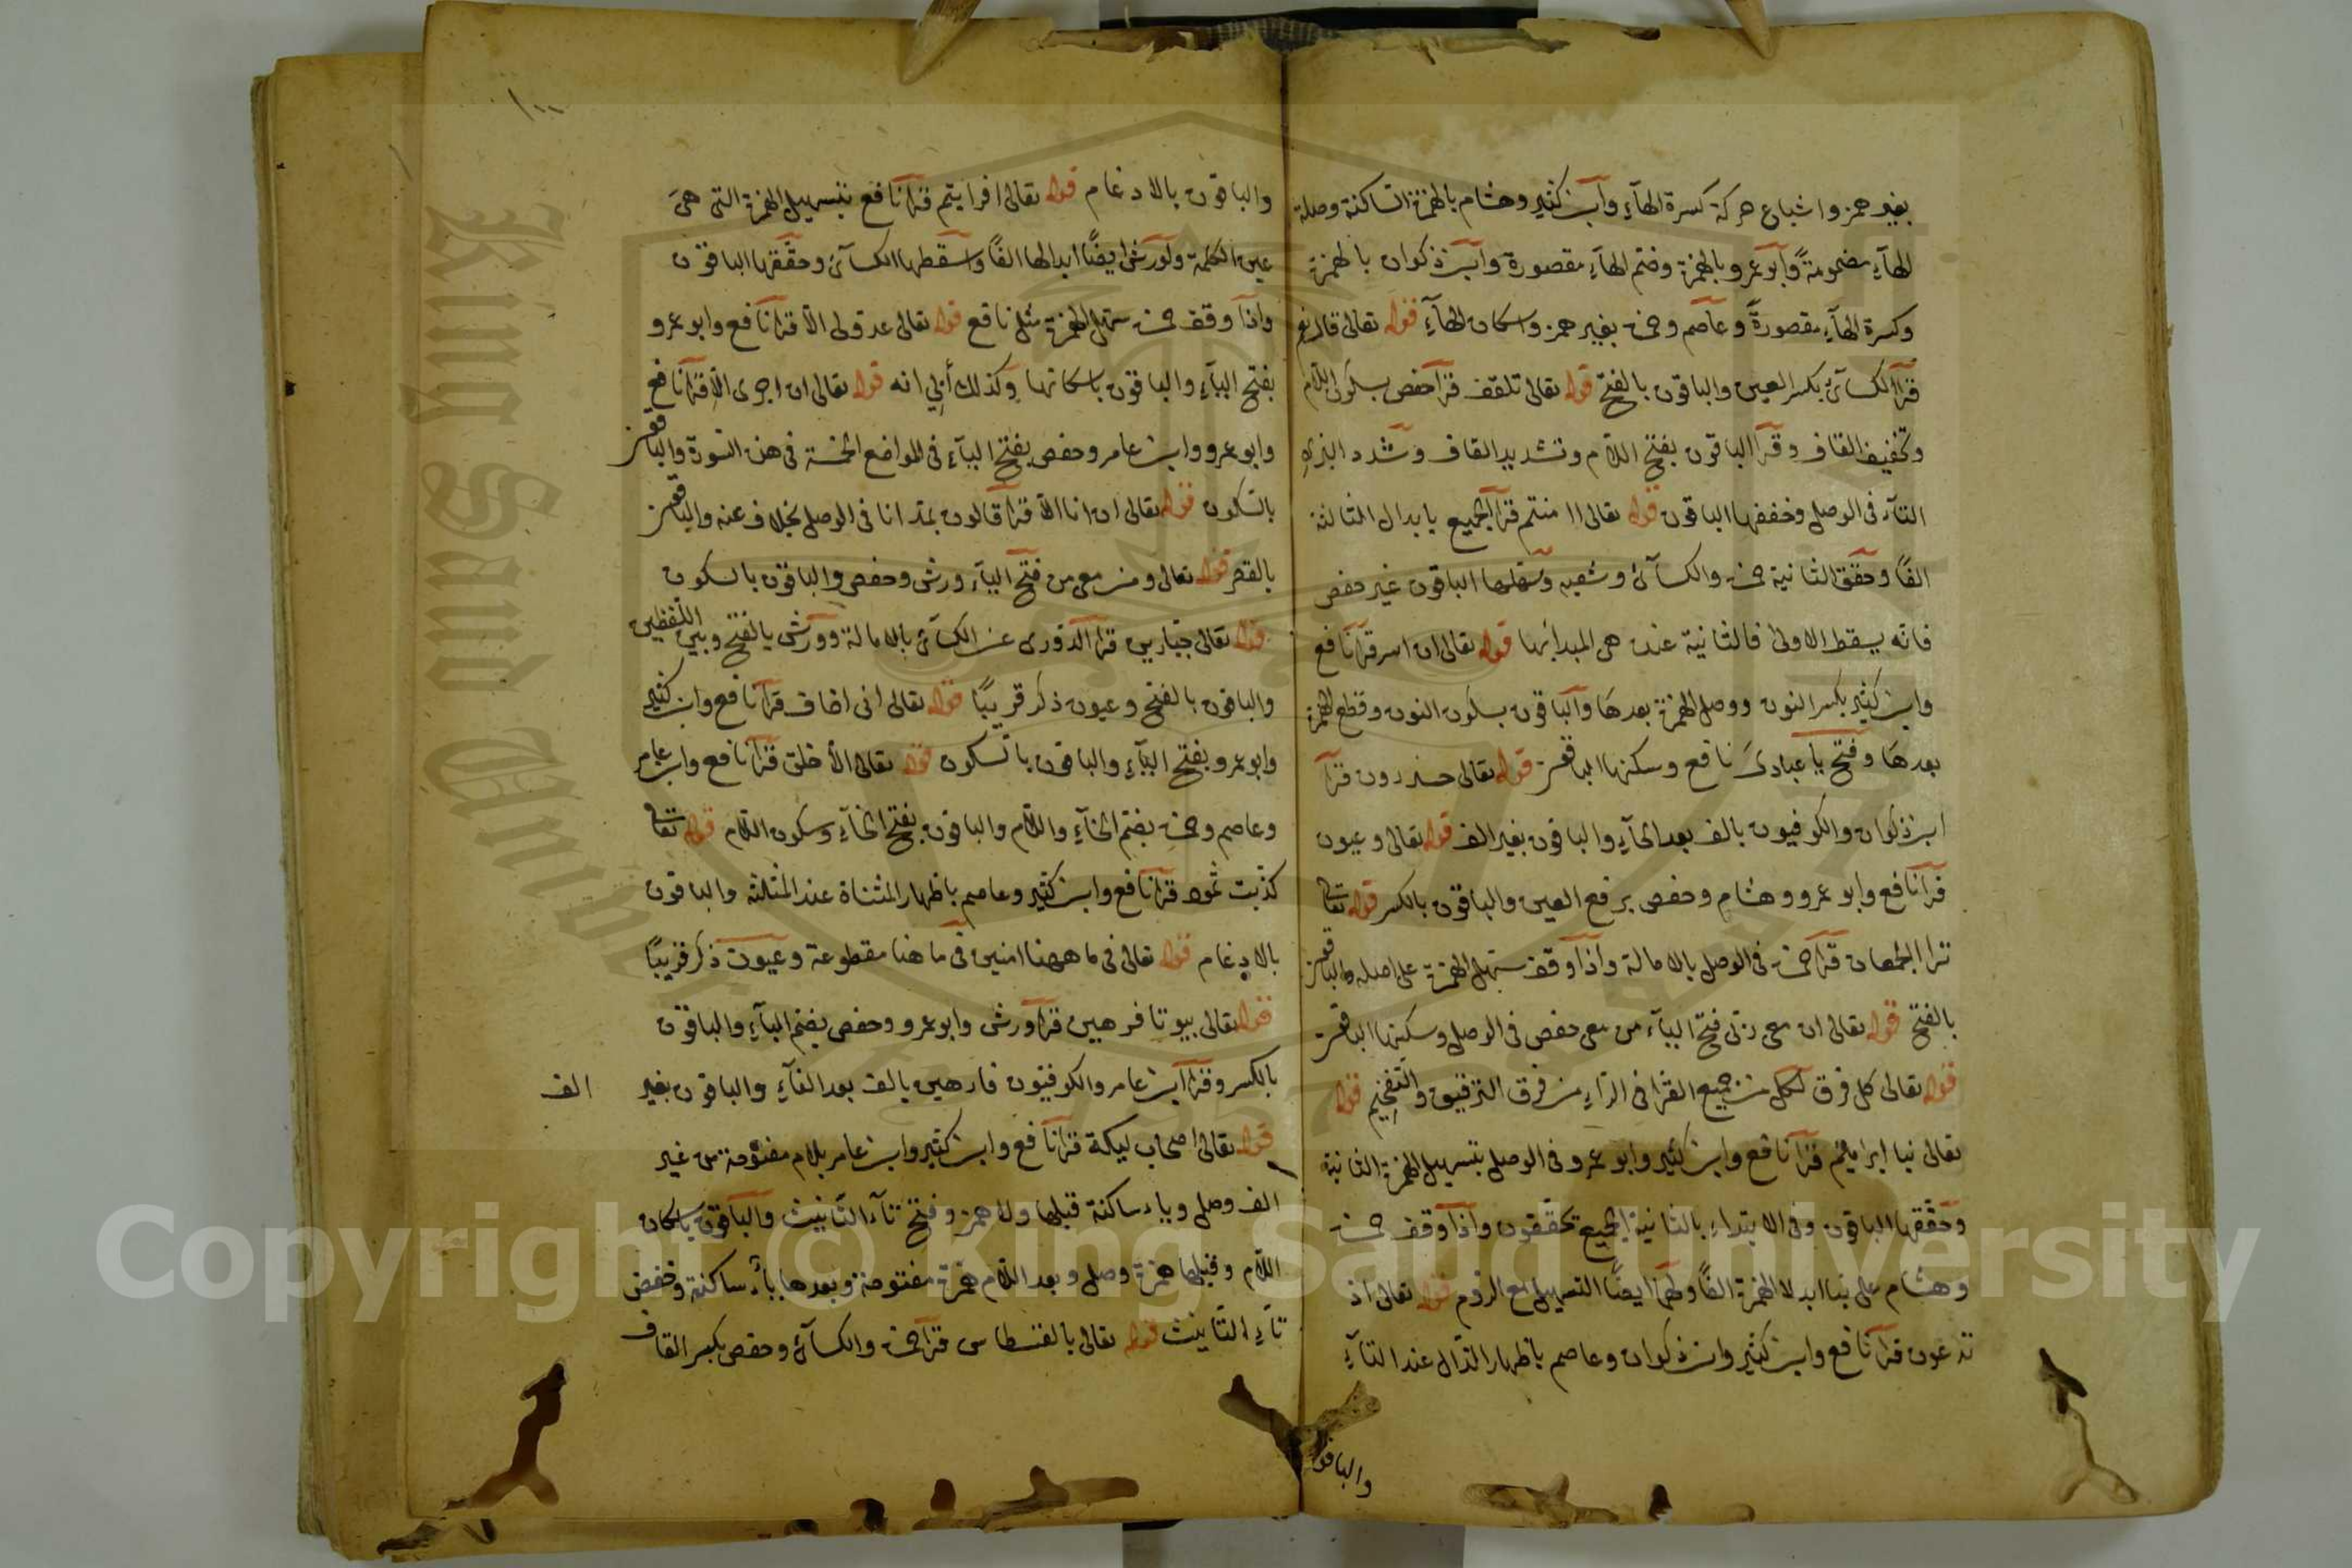 بغير همز واشباع حركة كسرة الهآء وآبن كثير وهشام بالهمزة الساكنة وصلة
الهآء مضمومةً وآبو عمرو بالهمزة وضم الهآء مقصورة وآبن ذكوان بالهمزة
وكسرة الهآء مقصورةً وعاصم وحمزة بغير همز واسكان الهآء قوله تعالى قال نعم
قرآ الكسآئى بكسر العين والباقون بالفتح قوله تعالى تلقف قرآ حفص بسكون اللام
وتخفيف القاف وقرآ الباقون بفتح اللام وتشديد القاف وشدد البزى
التآء فى الوصل وخففها الباقون قوله تعالى اامنتم قرآ الجميع بابدال الثالثة
الفًا وحقق الثانية حمزة والكسآئى وشعبه وسهلها الباقون غير حفص
فانه يسقط الاولى فالثانية عنده هى المبدأ بها قوله تعالى ان اسر قرآ نافع
وابن كثير بكسر النون ووصل الهمزة بعدها والباقون بسكون النون وقطع الهمزة
بعدها وفتح يا عبادى نافع وسكنها الباقون قوله تعالى حذرون قرآ
ابن ذكوان والكوفيون بالف بعد الحآء والباقون بغير الف قوله تعالى وعيون
قرآ نافع وابو عمرو وهشام وحفص برفع العين والباقون بالكسر قوله تعالى
ترا الجمعان قرآ حمزة فى الوصل بالامالة واذا وقف سهل الهمزة على اصله والباقون
بالفتح قوله تعالى ان معى ربى فتح اليآء من معى حفص فى الوصل وسكنها الباقون
قوله تعالى كل فرق لكل من جميع القرا فى الرآء من فرق الترقيق والتفخيم قوله
تعالى نبا ابراهيم قرآ نافع وابن كثير وابو عمرو فى الوصل بتسهيل الهمزة الثانية
وحققها الباقون وفى الابتداء بالثانية الجميع يحققون واذا وقف حمزة
وهشام على نبا ابدلا الهمزة الفًا ولهما ايضًا التسهيل مع الروم قوله تعالى اذ
تدعون قرآ نافع وابن كثير وابن ذكوان وعاصم باظهار الذال عند التآء
والباقون
١٠٠
والباقون بالادغام قوله تعالى افرايتم قرآ نافع بتسهيل الهمزة التى هى
عين الكلمة ولورش ايضًا ابدالها الفًا واسقطها الكسآئى وحققها الباقون
واذا وقف حمزة سهل الهمزة مثل نافع قوله تعالى عدو لى الا قرآ نافع وابو عمرو
بفتح اليآء والباقون باسكانها وكذلك أبى انه قوله تعالى ان اجرى الا قرآ نافع
وابو عمرو وابن عامر وحفص بفتح اليآء فى المواضع الخمسة فى هذه السورة والباقون
بالسكون قوله تعالى ان انا الا قرآ قالون بمد انا فى الوصل بخلاف عنه والباقون
بالقصر قوله تعالى ومن معى من فتح اليآء ورش وحفص والباقون بالسكون
قوله تعالى جبارين قرآ الدورى عن الكسآئى بالامالة وورش بالفتح وبين اللفظين
والباقون بالفتح وعيون ذكر قريبًا قوله تعالى انى اخاف قرآ نافع وابن كثير
وابو عمرو بفتح اليآء والباقون بالسكون قوله تعالى الا خلق قرآ نافع وابن عامر
وعاصم وحمزة بضم الخآء واللام والباقون بفتح الخآء وسكون اللام قوله تعالى
كذبت ثمود قرآ نافع وابن كثير وعاصم باظهار المثناة عند المثلثة والباقون
بالادغام قوله تعالى فى ما ههنا امنين فى ما هنا مقطوعة وعيون ذكر قريبًا
قوله تعالى بيوتا فرهين قرآ ورش وابو عمرو وحفص بضم البآء والباقون
بالكسر وقرآ ابن عامر والكوفيون فارهين بالف بعد الفآء والباقون بغير
الف
قوله تعالى اصحاب ليكة قرآ نافع وابن كثير وابن عامر بلام مفتوحة من غير
الف وصل وياء ساكنة قبلها ولا همز وفتح تآء التانيث والباقون باسكان
اللام وقبلها همزة وصل وبعد اللام همزة مفتوحة وبعدها يآء ساكنة وخفض
تآء التانيث قوله تعالى بالقسطاس قرآ حمزة والكسآئى وحفص بكسر القاف
King Saud University
Copyright © King Saud University